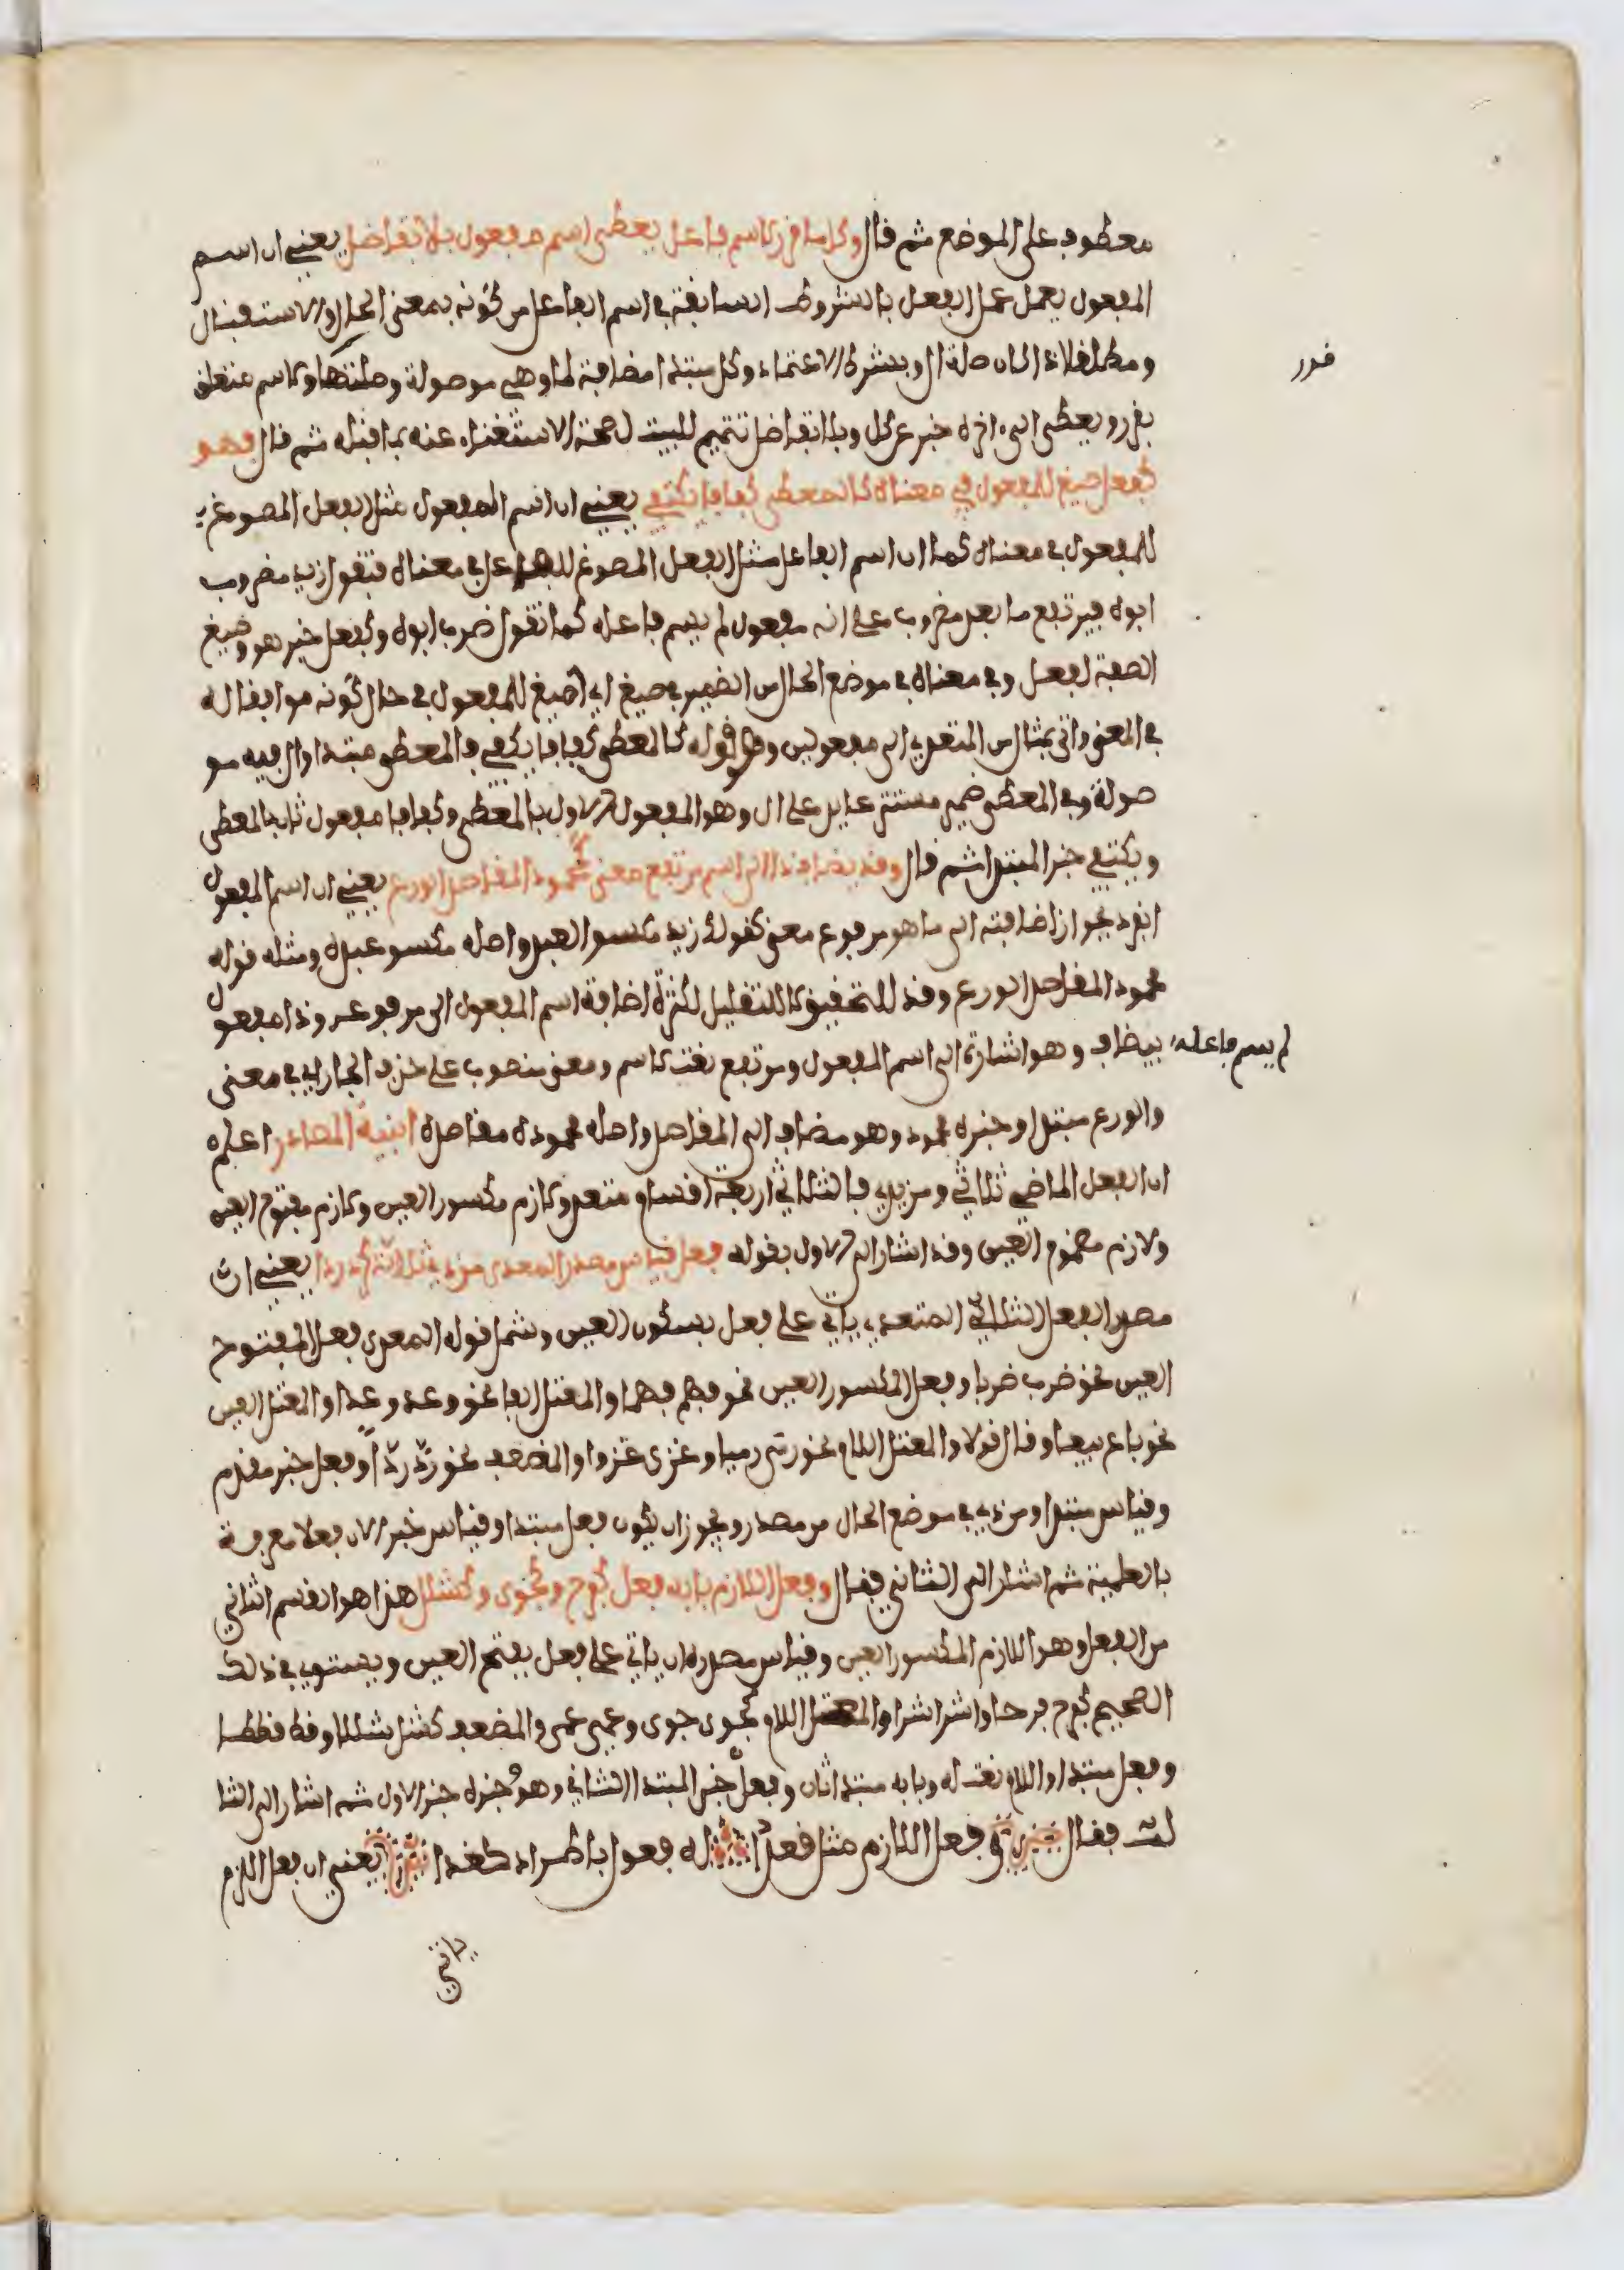 معطوف على الموضع ثم قال وكل ما قرر لاسم فاعل يعطى اسم مفعول بلا تفاضل يعني ان اسم
المفعول يعمل عمل الفعل بالشروط السابقة في اسم الفاعل من كونه بمعنى الحال والاستقبال
ومطلقا اذا كان صلة ال وبشرط الاعتماد وكل مبتدا مضافة لما وهي موصولة وصلتها ولاسم متعلق
قرر
بقرر ويعطى الى اخره خبر عن كل وبلا تفاضل تتميم للبيت لصحة الاستغناء عنه بما قبله ثم قال فهو
كفعل صيغ للمفعول في معناه كالمعطى كفافا يكتفي يعني ان اسم المفعول مثل الفعل المصوغ
للمفعول في معناه كما ان اسم الفاعل مثل الفعل المصوغ للفاعل في معناه فتقول زيد مضروب
ابوه فيرتفع ما بعد مضروب على انه مفعول لم يسم فاعله كما تقول ضرب ابوه وكفعل خبر هو وصيغ
الصفة لفعل وفي معناه في موضع الحال من الضمير في صيغ اي صيغ للمفعول في حال كونه موافقا له
في المعنى واتى بمثال من المتعدي الى مفعولين وهو قوله كالمعطى كفافا يكتفي فالمعطى مبتدا وال فيه مو
صولة وفي المعطى ضمير مستتر عايد على ال وهو المفعول الاول بالمعطى وكفافا مفعول ثان بالمعطى
ويكتفي خبر المبتدا ثم قال وقد يضاف ذا الى اسم مرتفع معنى كمحمود المقاصد الورع يعني ان اسم المفعول
انفرد بجواز اضافته الى ما هو مرفوع معنى كقولك زيد مكسو العبد واصله مكسو عبده ومثله قوله
محمود المقاصد الورع وقد للتحقيق لا للتقليل لكثرة اضافة اسم المفعول الى مرفوعه وذا مفعول
لم يسم فاعله بيضاف وهو اشارة الى اسم المفعول ومرتفع نعت لاسم ومعنى منصوب على حذف الجار اي في معنى
والورع مبتدا وخبره محمود وهو مضاف الى المقاصد واصله محموده مقاصده ابنية المصادر اعلم
ان الفعل الماضي ثلاثي ومزيد فالثلاثي اربعة اقسام متعد ولازم مكسور العين ولازم مفتوح العين
ولازم مضموم العين وقد اشار الى الاول بقوله فعل قياس مصدر المعدى من ذي ثلاثة كرد ردا يعني ان
مصدر الفعل الثلاثي المتعدي ياتي على فعل بسكون العين وشمل قوله المعدى فعل المفتوح
العين نحو ضرب ضربا وفعل المكسور العين نحو فهم فهما والمعتل الفا نحو وعد وعدا والمعتل العين
نحو باع بيعا وقال قولا والمعتل اللام نحو رمى رميا وغزى غزوا والمضعف نحو ردّ ردّا وفعل خبر مقدم
وقياس مبتدا ومن ذي في موضع الحال من مصدر ويجوز ان يكون فعل مبتدا وقياس خبر لان فعلا معرفة
بالعلمية ثم اشار الى الثاني فقال وفعل اللازم بابه فعل كفرح وكجوى وكشلل هذا هو القسم الثاني
من الفعل وهو اللازم المكسور العين وقياس مصدره ان ياتي على فعل بفتح العين ويستوي في ذلك
الصحيح كفرح فرحا واشر اشرا والمعتل اللام كجوى جوى وعمى عمى والمضعف كشل شللا وقط قططا
وفعل مبتدا واللازم نعت له وبابه مبتدا ثان وفعل خبر المبتدا الثاني وهو وخبره خبر الاول ثم اشار الى الثا
لث فقال وفعل اللازم مثل قعدا له فعول باطراد كغدا يعني ان فعل اللازم
ياتي